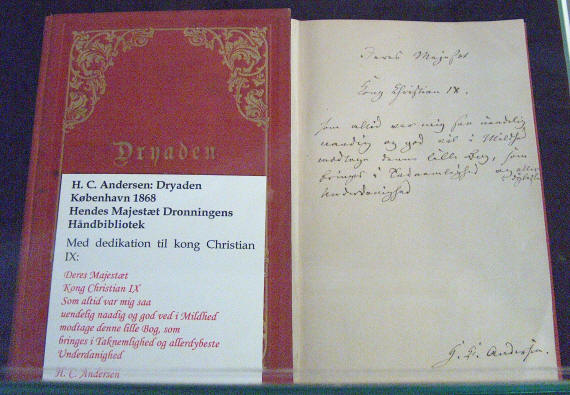 Dryaden
H. C. Andersen: Dryaden
København 1868
Hendes Majestæt Dronningens
Håndbibliotek
Med dedikation til kong Christian
IX:
Deres Majestæt
Kong Christian IX
Som altid var mig saa
uendelig naadig og god ved i Mildhed
modtage denne lille Bog, som
bringes i Taknemlighed og allerdybeste
Underdanighed
H. C. Andersen
Deres Majestæt
Kong Christian IX.
som altid var mig saa uendelig
naadig og god vil i Mildhed
modtage denne lille Bog, som
bringes i Taknemlighed og aller
dybeste
Underdanighed
H. C. Andersen.